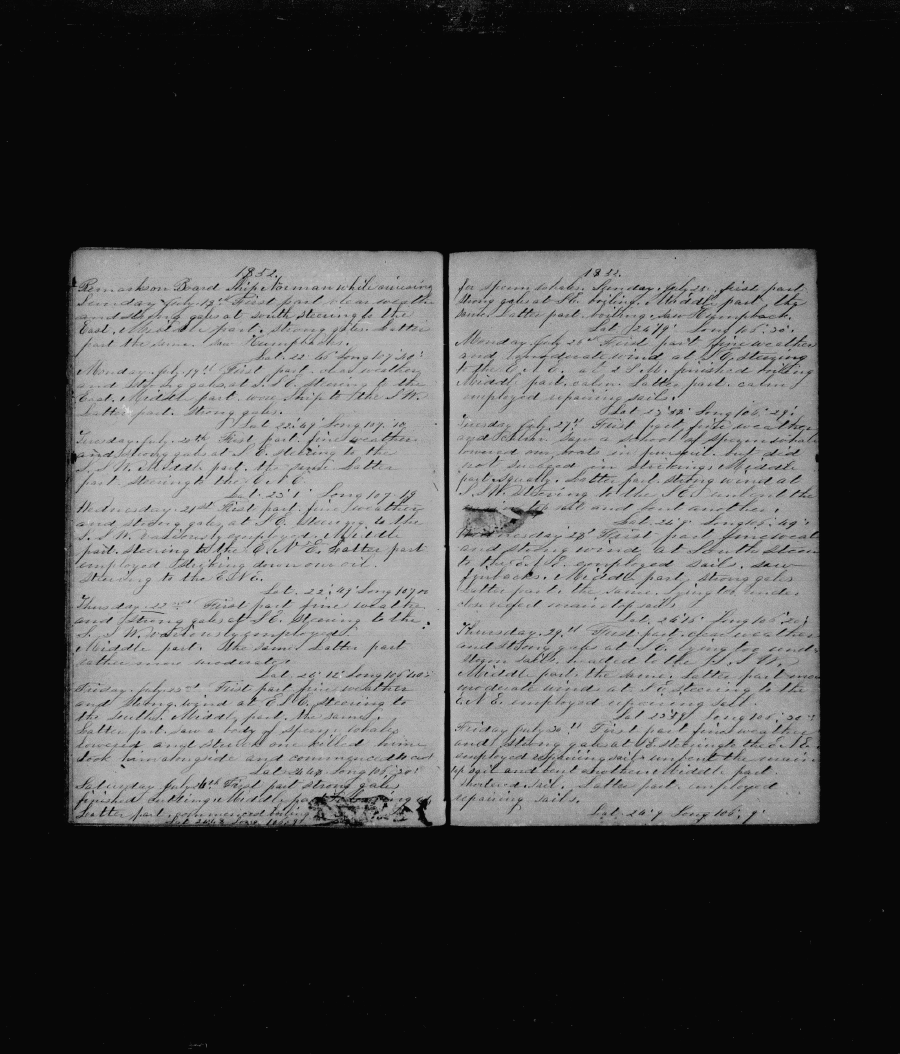 1852.
Remarks on Board Ship Norman while cruising
Sunday July 18th First part clear weather
and strong gales at south steering to the
East. Middle part. strong gales Latter
part the same. saw Humpbacks.
Lat. 22 46' Long 107 20'
Monday. July. 19th First part. clear weather
and strong gales at S. S E. steering to the
East. Middle part wore ship to the S. W.
Latter part. strong gales.
Lat 22. 49' Long 107. 10
Tuesday. July. 20th First part. fine weather
and strong gales at S. E. steering to the
S. S W. Middle part. the same Latter
part. steering to the E N E.
Lat. 23° 1' Long 107. 19
Wednesday. 21st First part. fine weather
and strong gales at S E. steering to the
S. S W. variously employed. Middle
part. steering to the E. N E. Latter part
employed stowing down our oil.
steering to the E N E.
Lat. 22. 47' Long 107.00
Thursday. 22nd First part fine weather
and strong gales at S E. steering to the
S. S W. variously employed.
Middle part. the same Latter part
rather more moderate
Friday. July. 23rd First part fine weather
and strong wind at E S E. steering to
the South. Middle part the same.
Latter part. saw a body of sperm whales
lowered and struck one killed him
took him alongside and commenced to cut
Lat 24 43' Long 106. 20'
Saturday July 24th First part strong gales
finished cutting. Middle part
Latter part. commenced boiling
1852.
for sperm whales. Sunday. July 25. first part.
strong gales at S E. boiling. Middle part. the
same. Latter part. boiling. saw Humpback.
Lat. 24° 9' Long 106° 32'
Monday July 26th First part fine weather
and moderate wind at S E. steering
to the E. N E. at 2 P.M. finished boiling
Middle part. calm. Latter part. calm
employed repairing sails.
Tuesday July. 27th First part, fine weather
and calm. saw a school of sperm whales
lowered our boat in pursuit but did
not succeed in striking. Middle
part. squally. Latter part. strong wind at
S. S W. steering to the S E. unbent the
sail and bent another.
Lat. 24° 9' Long 106. 49'
28 First part fine weather
and strong wind at South steering
to the employed sail. saw
finbacks. Middle part. strong gales
Latter part. the same. lying too under
close reefed main topsail
Thursday. 29th First part. clear weather
and strong gales at S. E. lying too under
storm sails. headed to the S. S W.
Middle part. the same. Latter part more
moderate wind at S E steering to the
E. N E. employed repairing sail
Friday July 30th First part fine weather
and strong gales at S E. steering to the E. N E.
employed repairing sails unbent the main
top sail and bent another Middle part
shortened sail. Latter part. employed
repairing sails.
Lat. 24° 9' Long 106° 9'